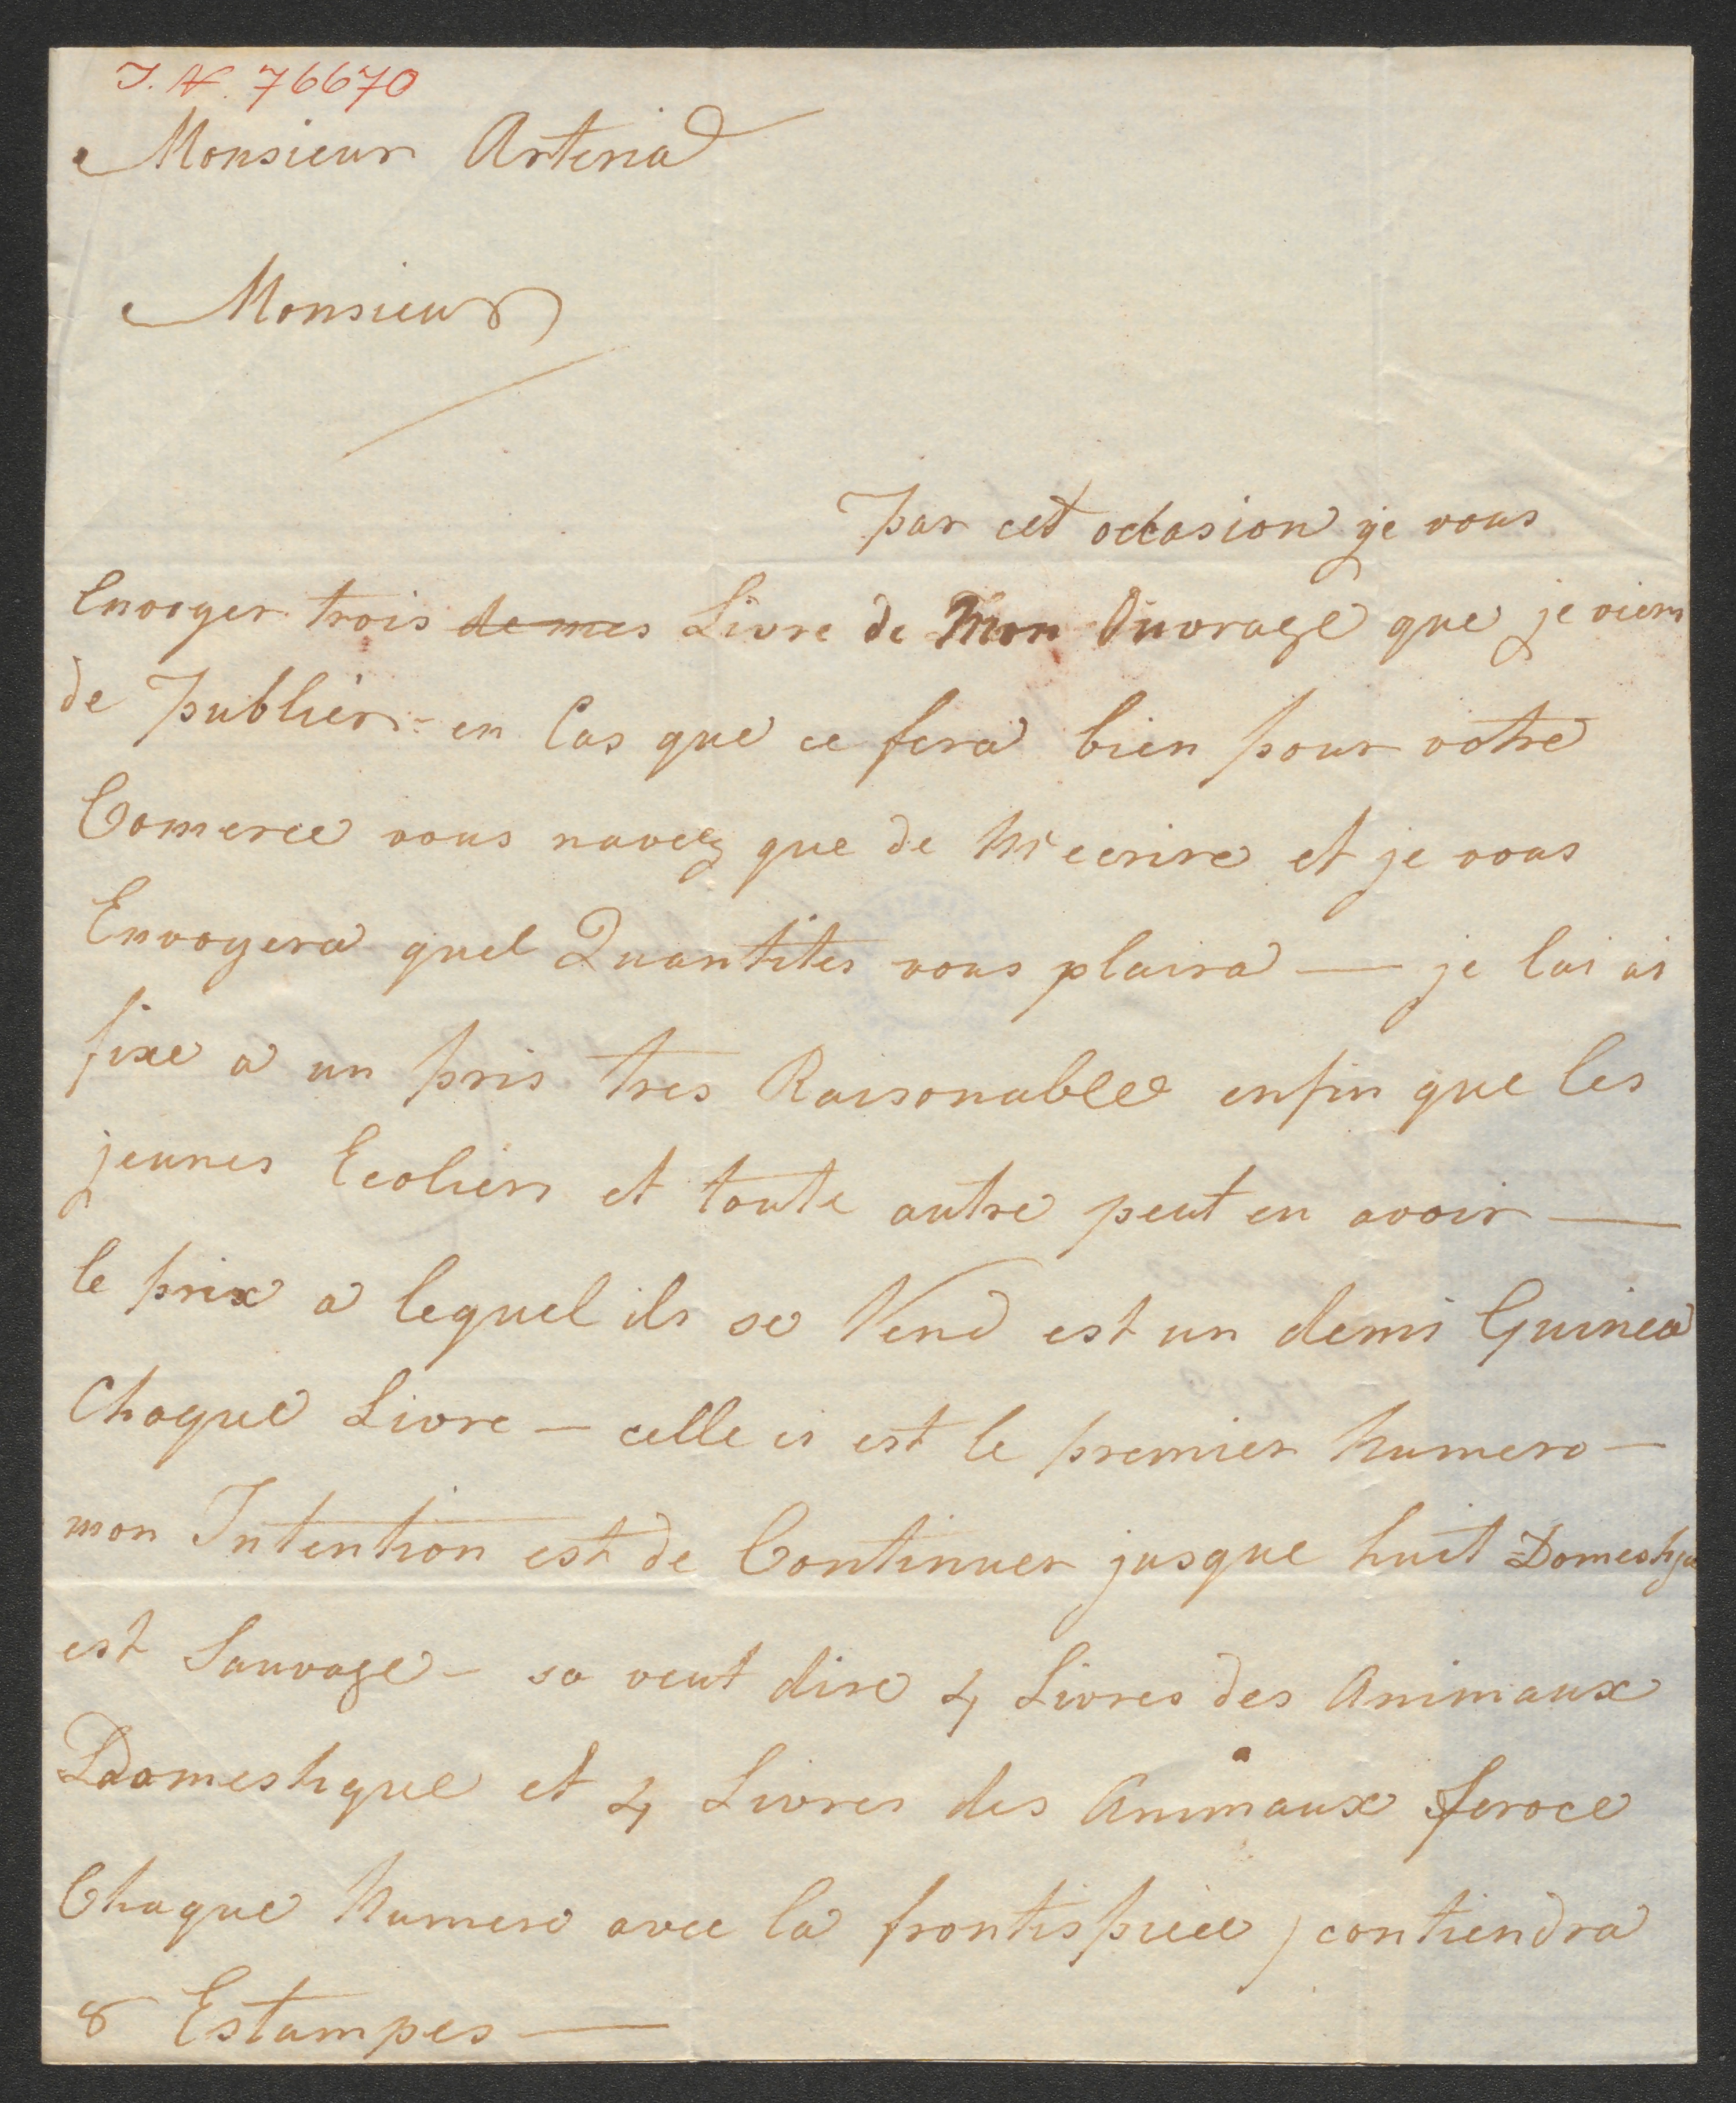 I. N. 76670
Monsieur Arteria
Monsieur
par cet occasion je vous
Envoyer trois de mes Livre de Mon Ouvrage que je viens
de publier - en Cas que ce fera bien pour votre
Comerce vous navez que de M'ecrire et je vous
Envoyera quel Quantites vous plaira — je lai ai
fixe a un pris tres Raisonablee enfin que les
jeunes Ecoliers et toute autre peut en avoir —
le prix a lequel ils se Vend est un demi Guinea
Chaque Livre — celle ci est le premier Numero —
mon Intention est de Continuer jusque huit Domestique
est Sauvage — sa veut dire 4 Livres des Animaux
Domestique et 4 Livres des Animaux feroce
Chaque Numero avec la frontispiece, contiendra
8 Estampes —